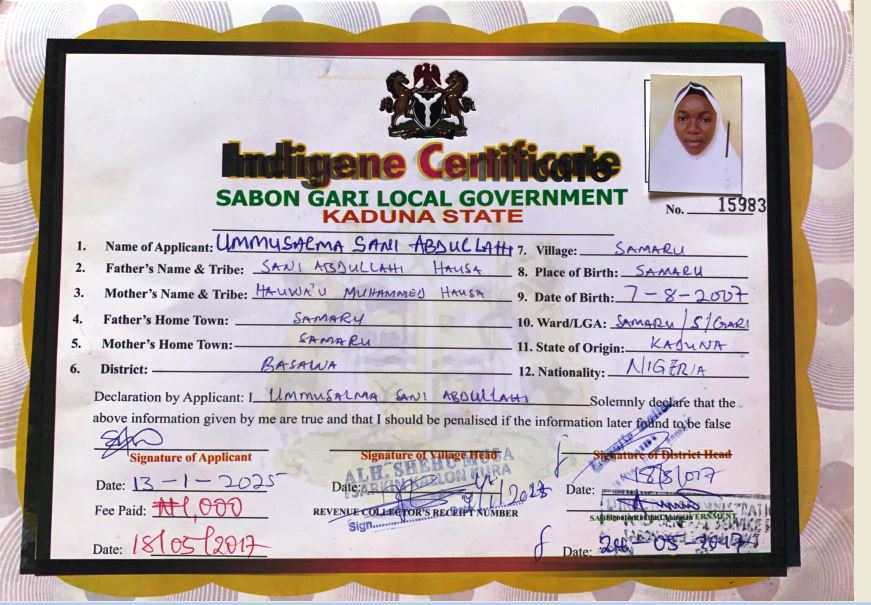 Indigene Certificate
SABON GARI LOCAL GOVERNMENT
KADUNA STATE
No. 15983
1. Name of Applicant: UMMUSALMA SANI ABDULLAHI
2. Father's Name & Tribe: SANI ABDULLAHI HAUSA
3. Mother's Name & Tribe: HAUWA'U MUHAMMED HAUSA
4. Father's Home Town: SAMARU
5. Mother's Home Town: SAMARU
6. District: BASAWA
7. Village: SAMARU
8. Place of Birth: SAMARU
9. Date of Birth: 7-8-2007
10. Ward/LGA: SAMARU / S/GARI
11. State of Origin: KADUNA
12. Nationality: NIGERIA
Declaration by Applicant: I UMMUSALMA SANI ABDULLAHI Solemnly declare that the
above information given by me are true and that I should be penalised if the information later found to be false
Signature of Applicant
Date: 13-1-2025
Fee Paid: ₦1,000
Date: 18/05/2017
Signature of Village Head
ALH. SHEHU
SARKIN
Date:
REVENUE COLLECTOR'S RECEIPT NUMBER
Sign
Signature of District Head
Date: 18/8/017
GOVERNMENT
Date: 05-2017